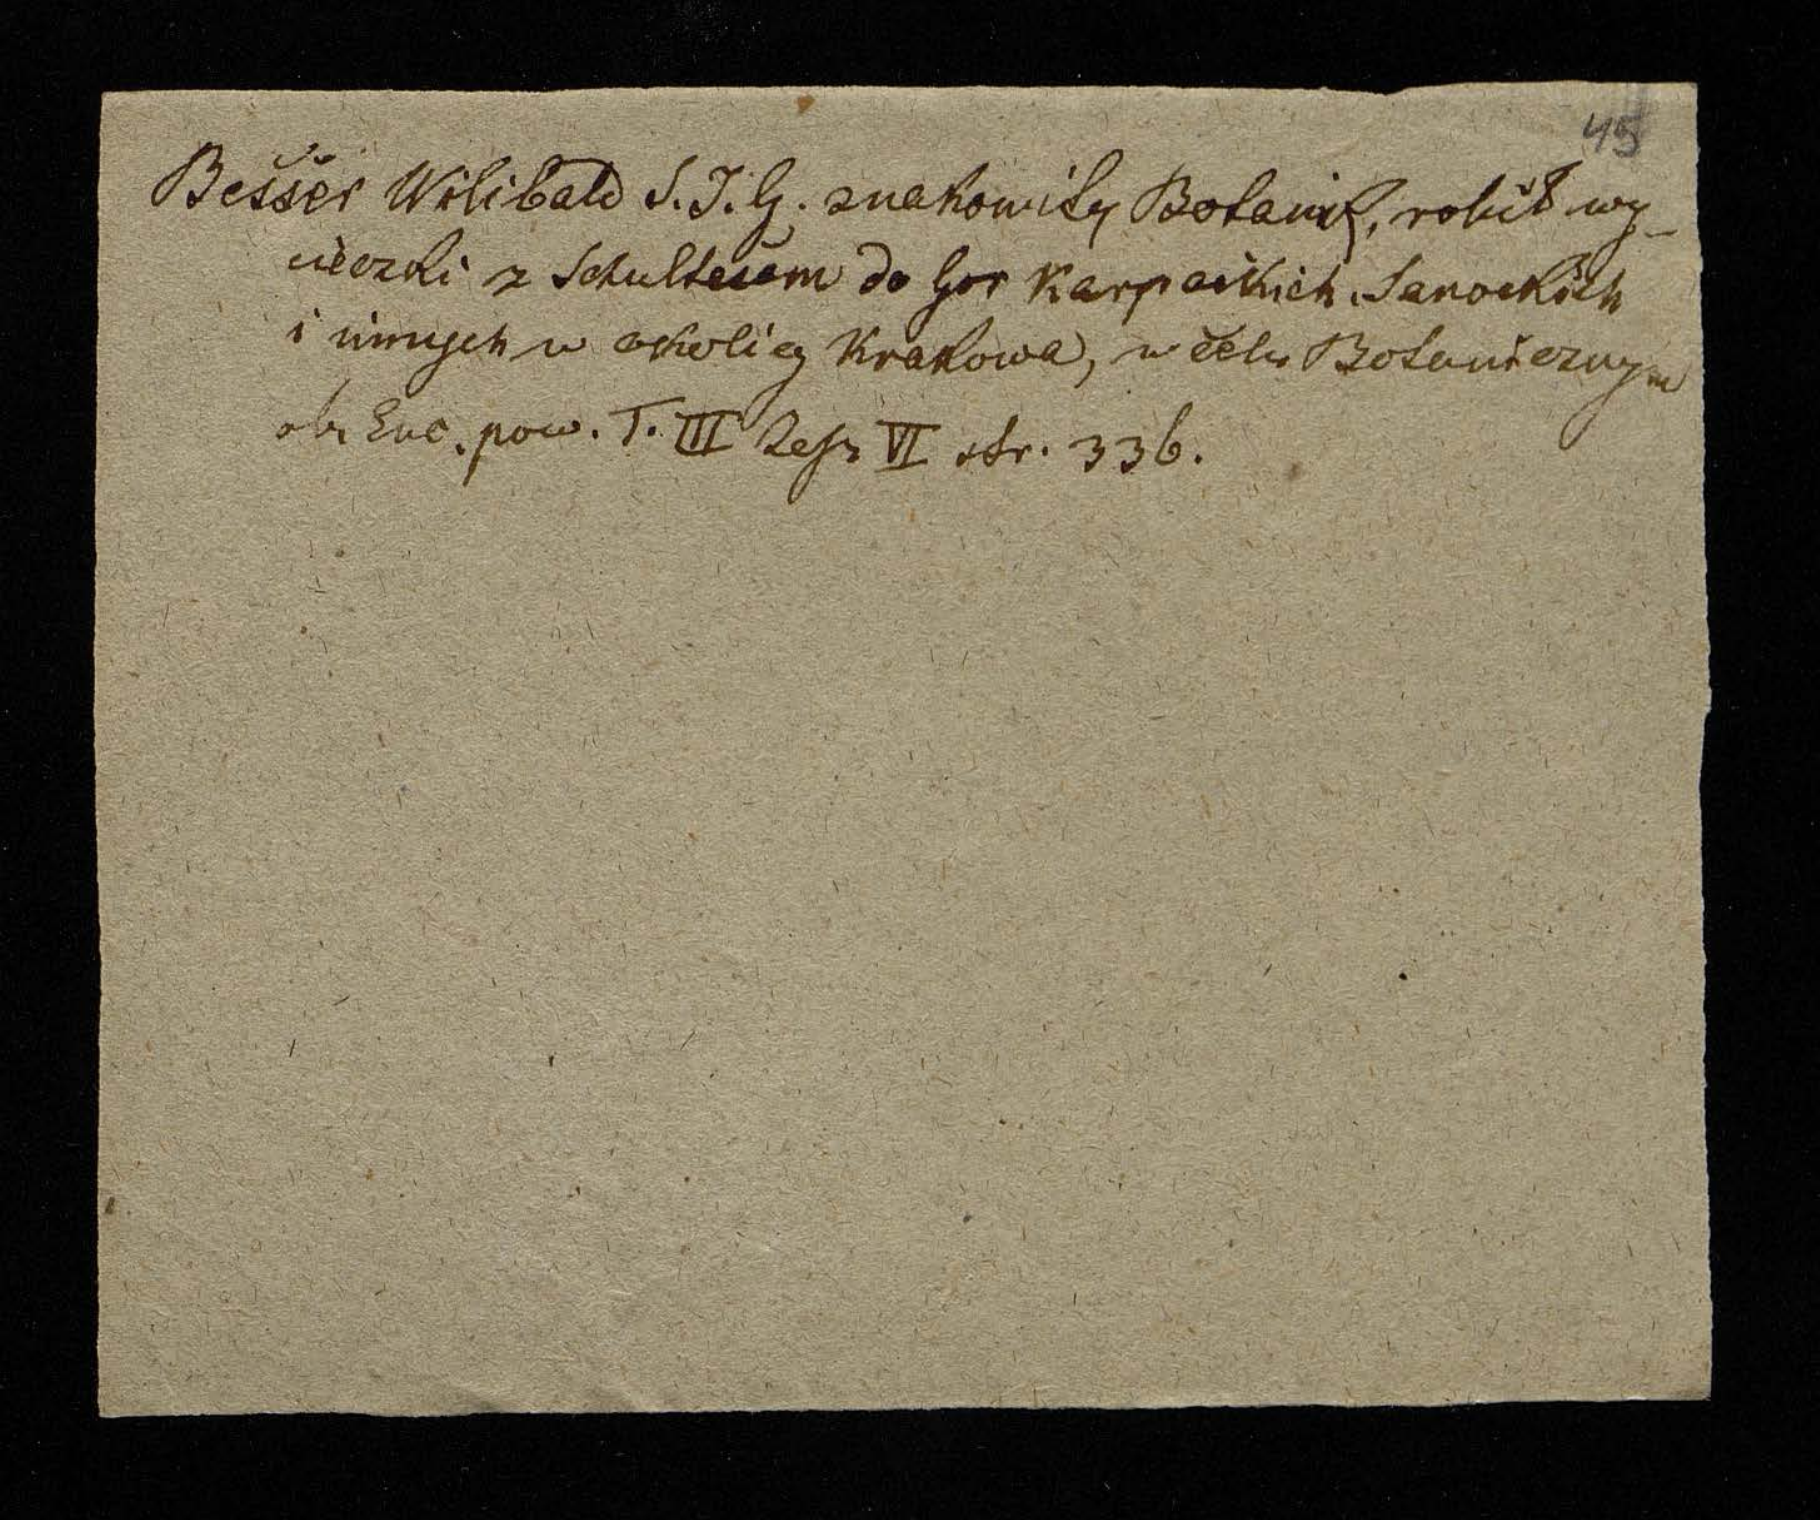 45
Besser Wilibald S. J. G. znakomity Botanik, robił wy-
cieczki z Schultesem do Gor Karpackich, Sanockich
i innych w okolicy Krakowa, w celu Botanicznym
ob. Enc. pow. T. III Zesz VI str. 336.